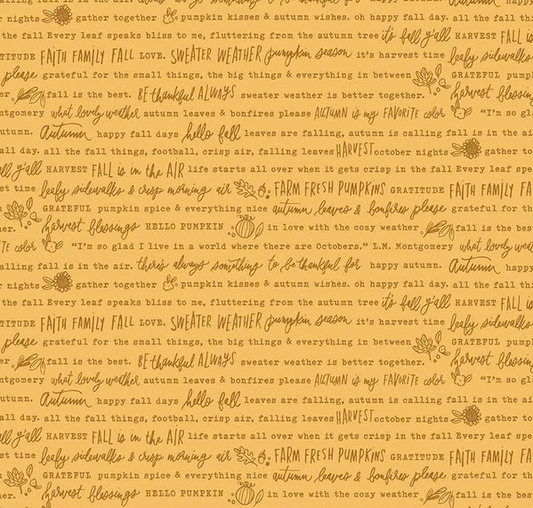 there's always something to be thankful for happy autumn. Autumn happy
gather together pumpkin kisses & autumn wishes. oh happy fall day. all the fall thin
the fall Every leaf speaks bliss to me, fluttering from the autumn tree it's fall y'all HARVEST FALL is
TITUDE FAITH FAMILY FALL LOVE. SWEATER WEATHER pumpkin season it's harvest time leafy sidewalks
please grateful for the small things, the big things & everything in between GRATEFUL pump
er. fall is the best. BE thankful ALWAYS sweater weather is better together. harvest blessin
tgomery what lovely weather autumn leaves & bonfires please AUTUMN is my FAVORITE color "I'm so gl
utumn. Autumn happy fall days hello fall leaves are falling, autumn is calling fall is in the ai
all day. all the fall things, football, crisp air, falling leaves HARVEST october nights gather to
all y'all HARVEST FALL is in the AIR life starts all over when it gets crisp in the fall Every leaf spe
st time leafy sidewalks & crisp morning air FARM FRESH PUMPKINS GRATITUDE FAITH FAMILY FA
GRATEFUL pumpkin spice & everything nice autumn leaves & bonfires please grateful for th
er. harvest blessings HELLO PUMPKIN in love with the cozy weather fall is the bes
TE color "I'm so glad I live in a world where there are Octobers." L.M. Montgomery what lovely weat
alling fall is in the air. there's always something to be thankful for happy autumn. Autumn happy
r nights gather together pumpkin kisses & autumn wishes. oh happy fall day. all the fall thin
the fall Every leaf speaks bliss to me, fluttering from the autumn tree it's fall y'all HARVEST FALL is
TITUDE FAITH FAMILY FALL LOVE. SWEATER WEATHER pumpkin season it's harvest time leafy sidewalks
please grateful for the small things, the big things & everything in between GRATEFUL pump
er. fall is the best. BE thankful ALWAYS sweater weather is better together. harvest blessin
tgomery what lovely weather autumn leaves & bonfires please AUTUMN is my FAVORITE color "I'm so gl
utumn. Autumn happy fall days hello fall leaves are falling, autumn is calling fall is in the ai
all day. all the fall things, football, crisp air, falling leaves HARVEST october nights gather to
all y'all HARVEST FALL is in the AIR life starts all over when it gets crisp in the fall Every leaf spe
st time leafy sidewalks & crisp morning air FARM FRESH PUMPKINS GRATITUDE FAITH FAMILY FA
GRATEFUL pumpkin spice & everything nice autumn leaves & bonfires please grateful for th
er. harvest blessings HELLO PUMPKIN in love with the cozy weather fall is the bes